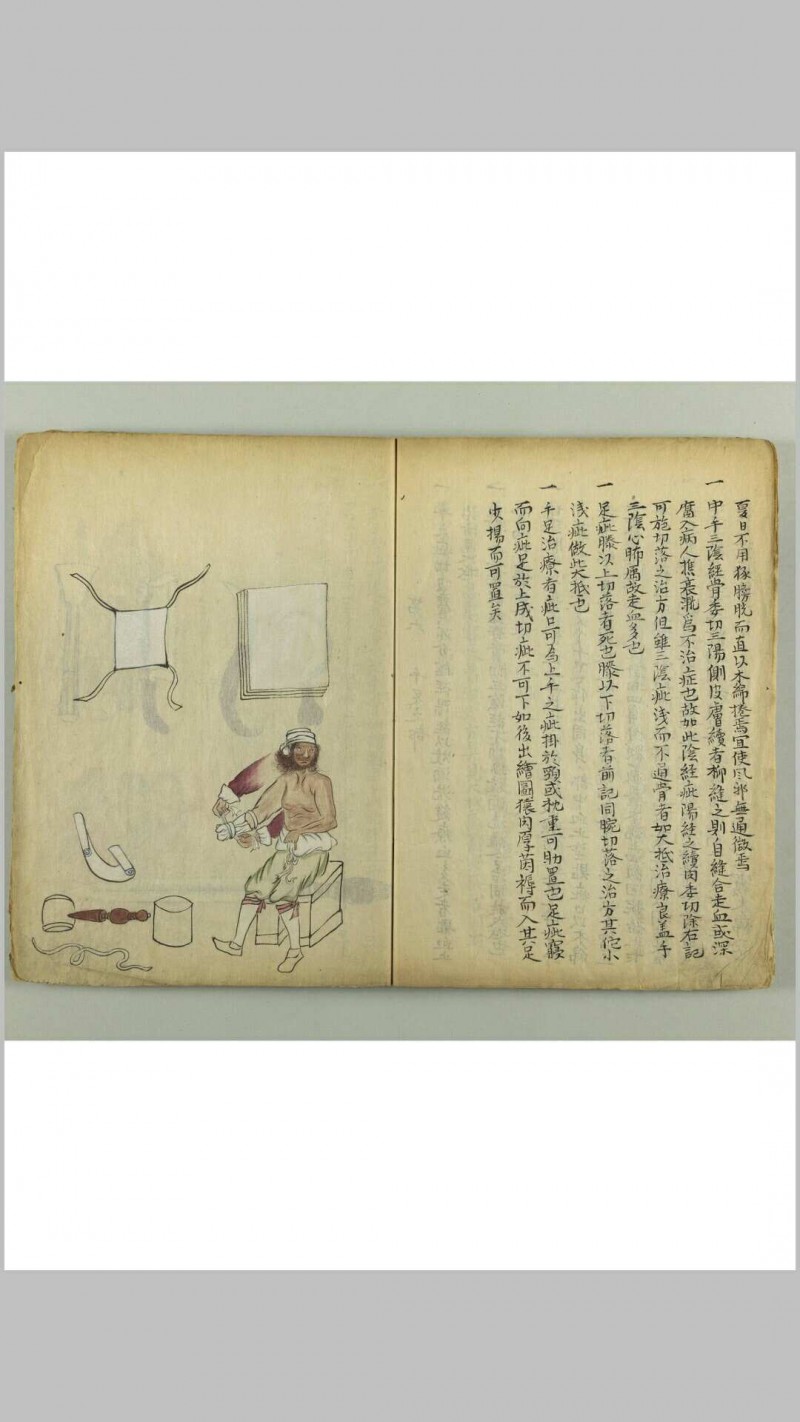 夏日不用豚膀胱而直以木綿捲焉宜使風邪無通徹焉
一 中手三陰経骨委切三陽側皮膚續者柳縫之則自縫合走血或深
腐入病人憔衰漑為不治症也故如此陰経疵陽経之續肉委切除右記
可施切落之治方但雖三陰疵浅而不通骨者如大抵治療良蓋手
三陰心肺属故走血多也
一 足疵膝以上切落者死也膝以下切落者前記同腕切落之治方其佗小
浅疵做此大抵也
一 手足治療者疵口可為上手之疵掛於頸或枕重可助置也足疵寝
而向疵足於上成切疵不可下如後出繪圖穣肉厚茵褥而入其足
少揚而可置矣